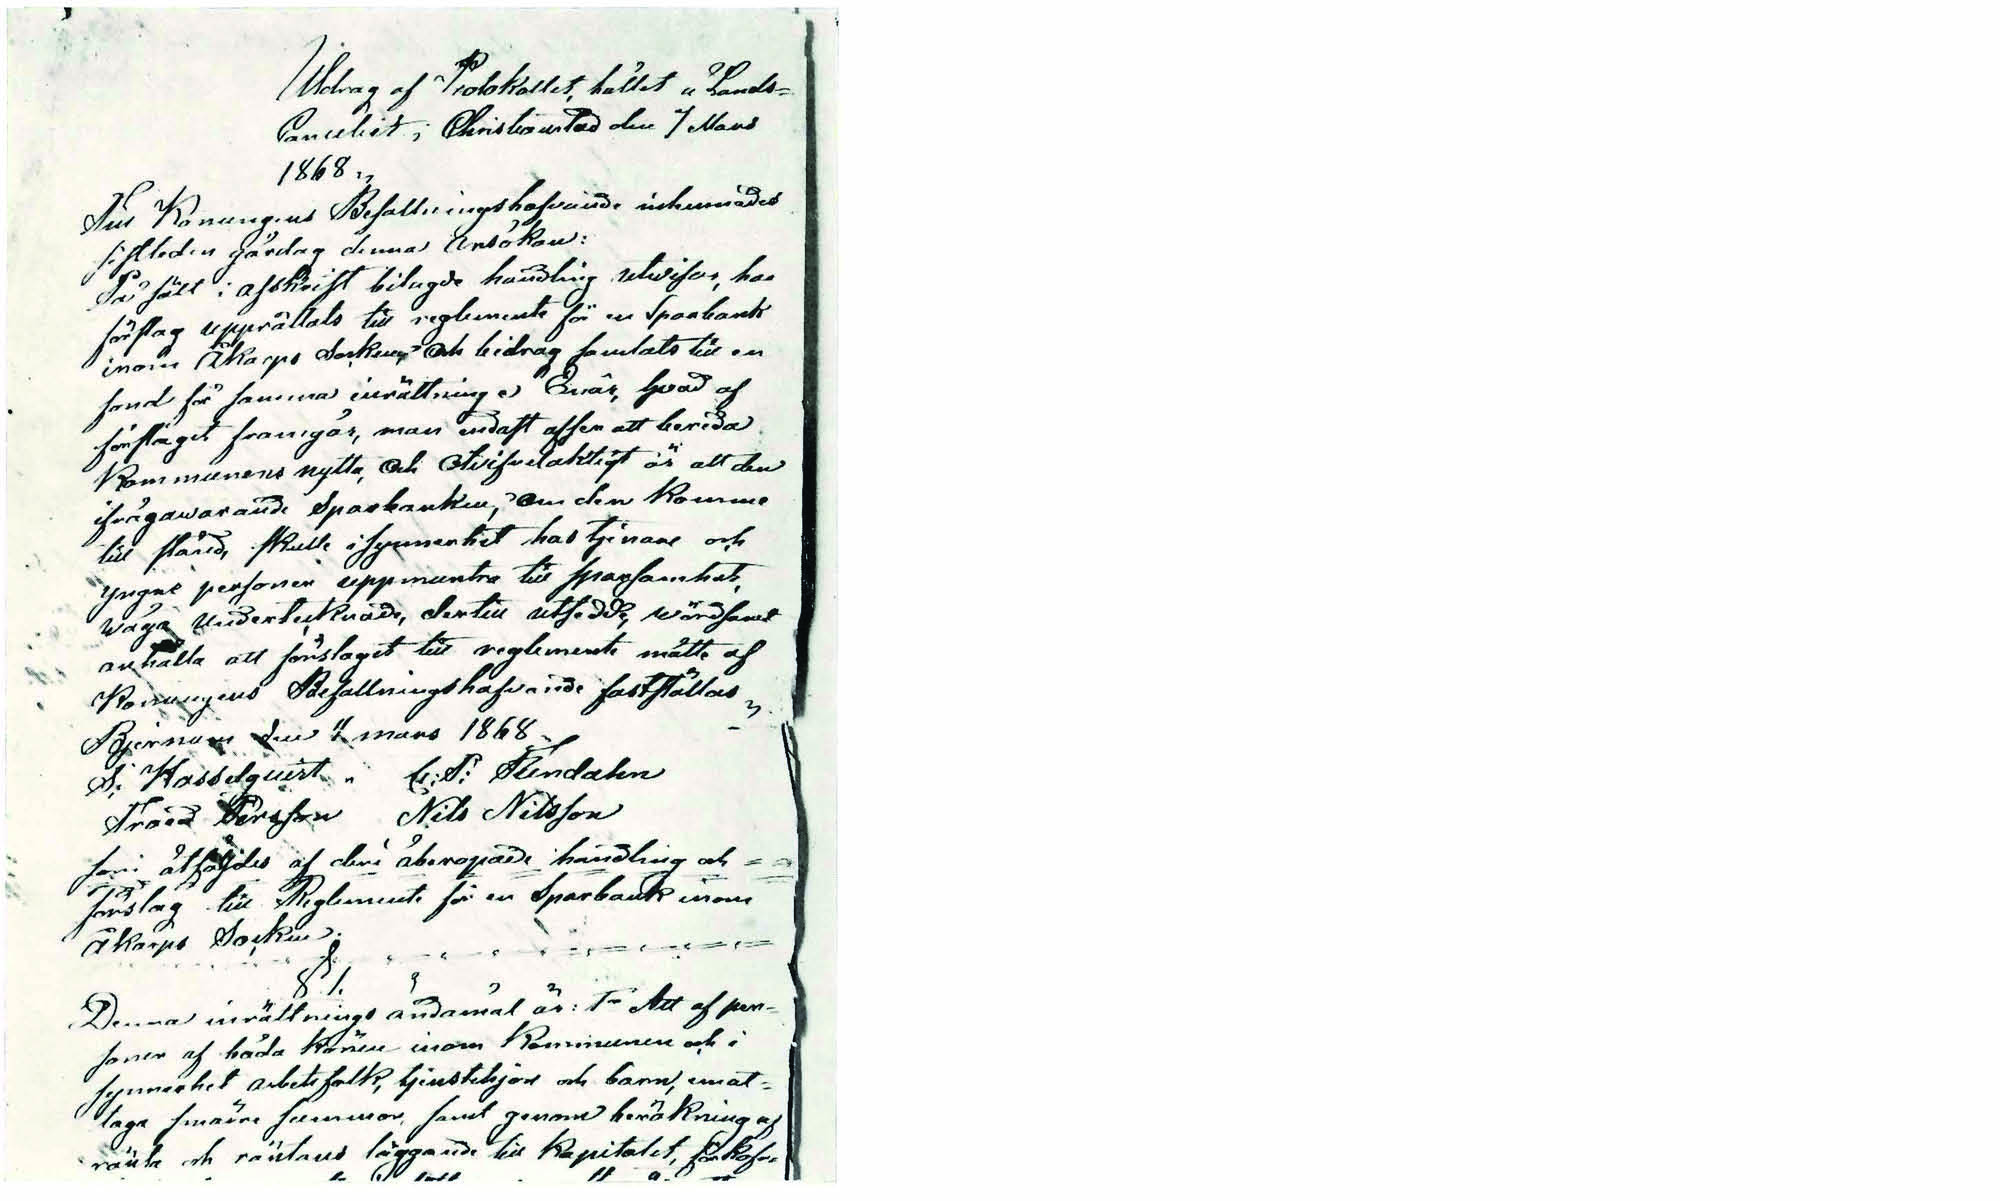 Utdrag af Protokollet, hållet å Lands-
Cancliet i Christianstad den 7 Mars
1868.
Till Konungens Befallningshafvande inkemnades
sistleden gårdag denna Ansökan:
På sätt i afskrift bilagde handling utvisar, har
förslag upprättats till reglemente för en Sparbank
inom Åkarps Socken, och bidrag samlats till en
fond för samma inrättning. Enär, hvad af
förslaget framgår, man endast afser att bereda
Kommunens nytta, och otvifvelaktigt är att den
ifrågawarande Sparbanken, om den komme
till stånd, skulle isynnerhet hos tjenare och
yngre personer uppmuntra till sparsamhet,
våga undertecknade, dertill utsedde, wördsamt
anhålla att förslaget till reglemente måtte af
Konungens Befallningshafvande fastställas
Bjernum den 4 mars 1868
S. Hasselquist C. P.
Troed Persson Nils Nilsson
som åtföljdes af deri åberopade handling och
förslag till Reglemente för en Sparbank inom
Åkarps Socken.
§ 1.
Denna inrättnings ändamål är: 1° Att af per-
soner af båda könen inom Kommunen och i
synnerhet arbetsfolk, tjenstehjon och barn, emot-
taga smärre summor, samt genom beräkning af
ränta och räntans läggande till Kapitalet,